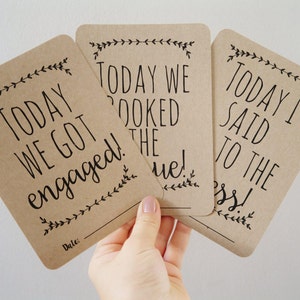 TODAY
WE GOT
engaged!
Date:
TODAY WE
BOOKED
THE
TODAY I
SAID
TO THE